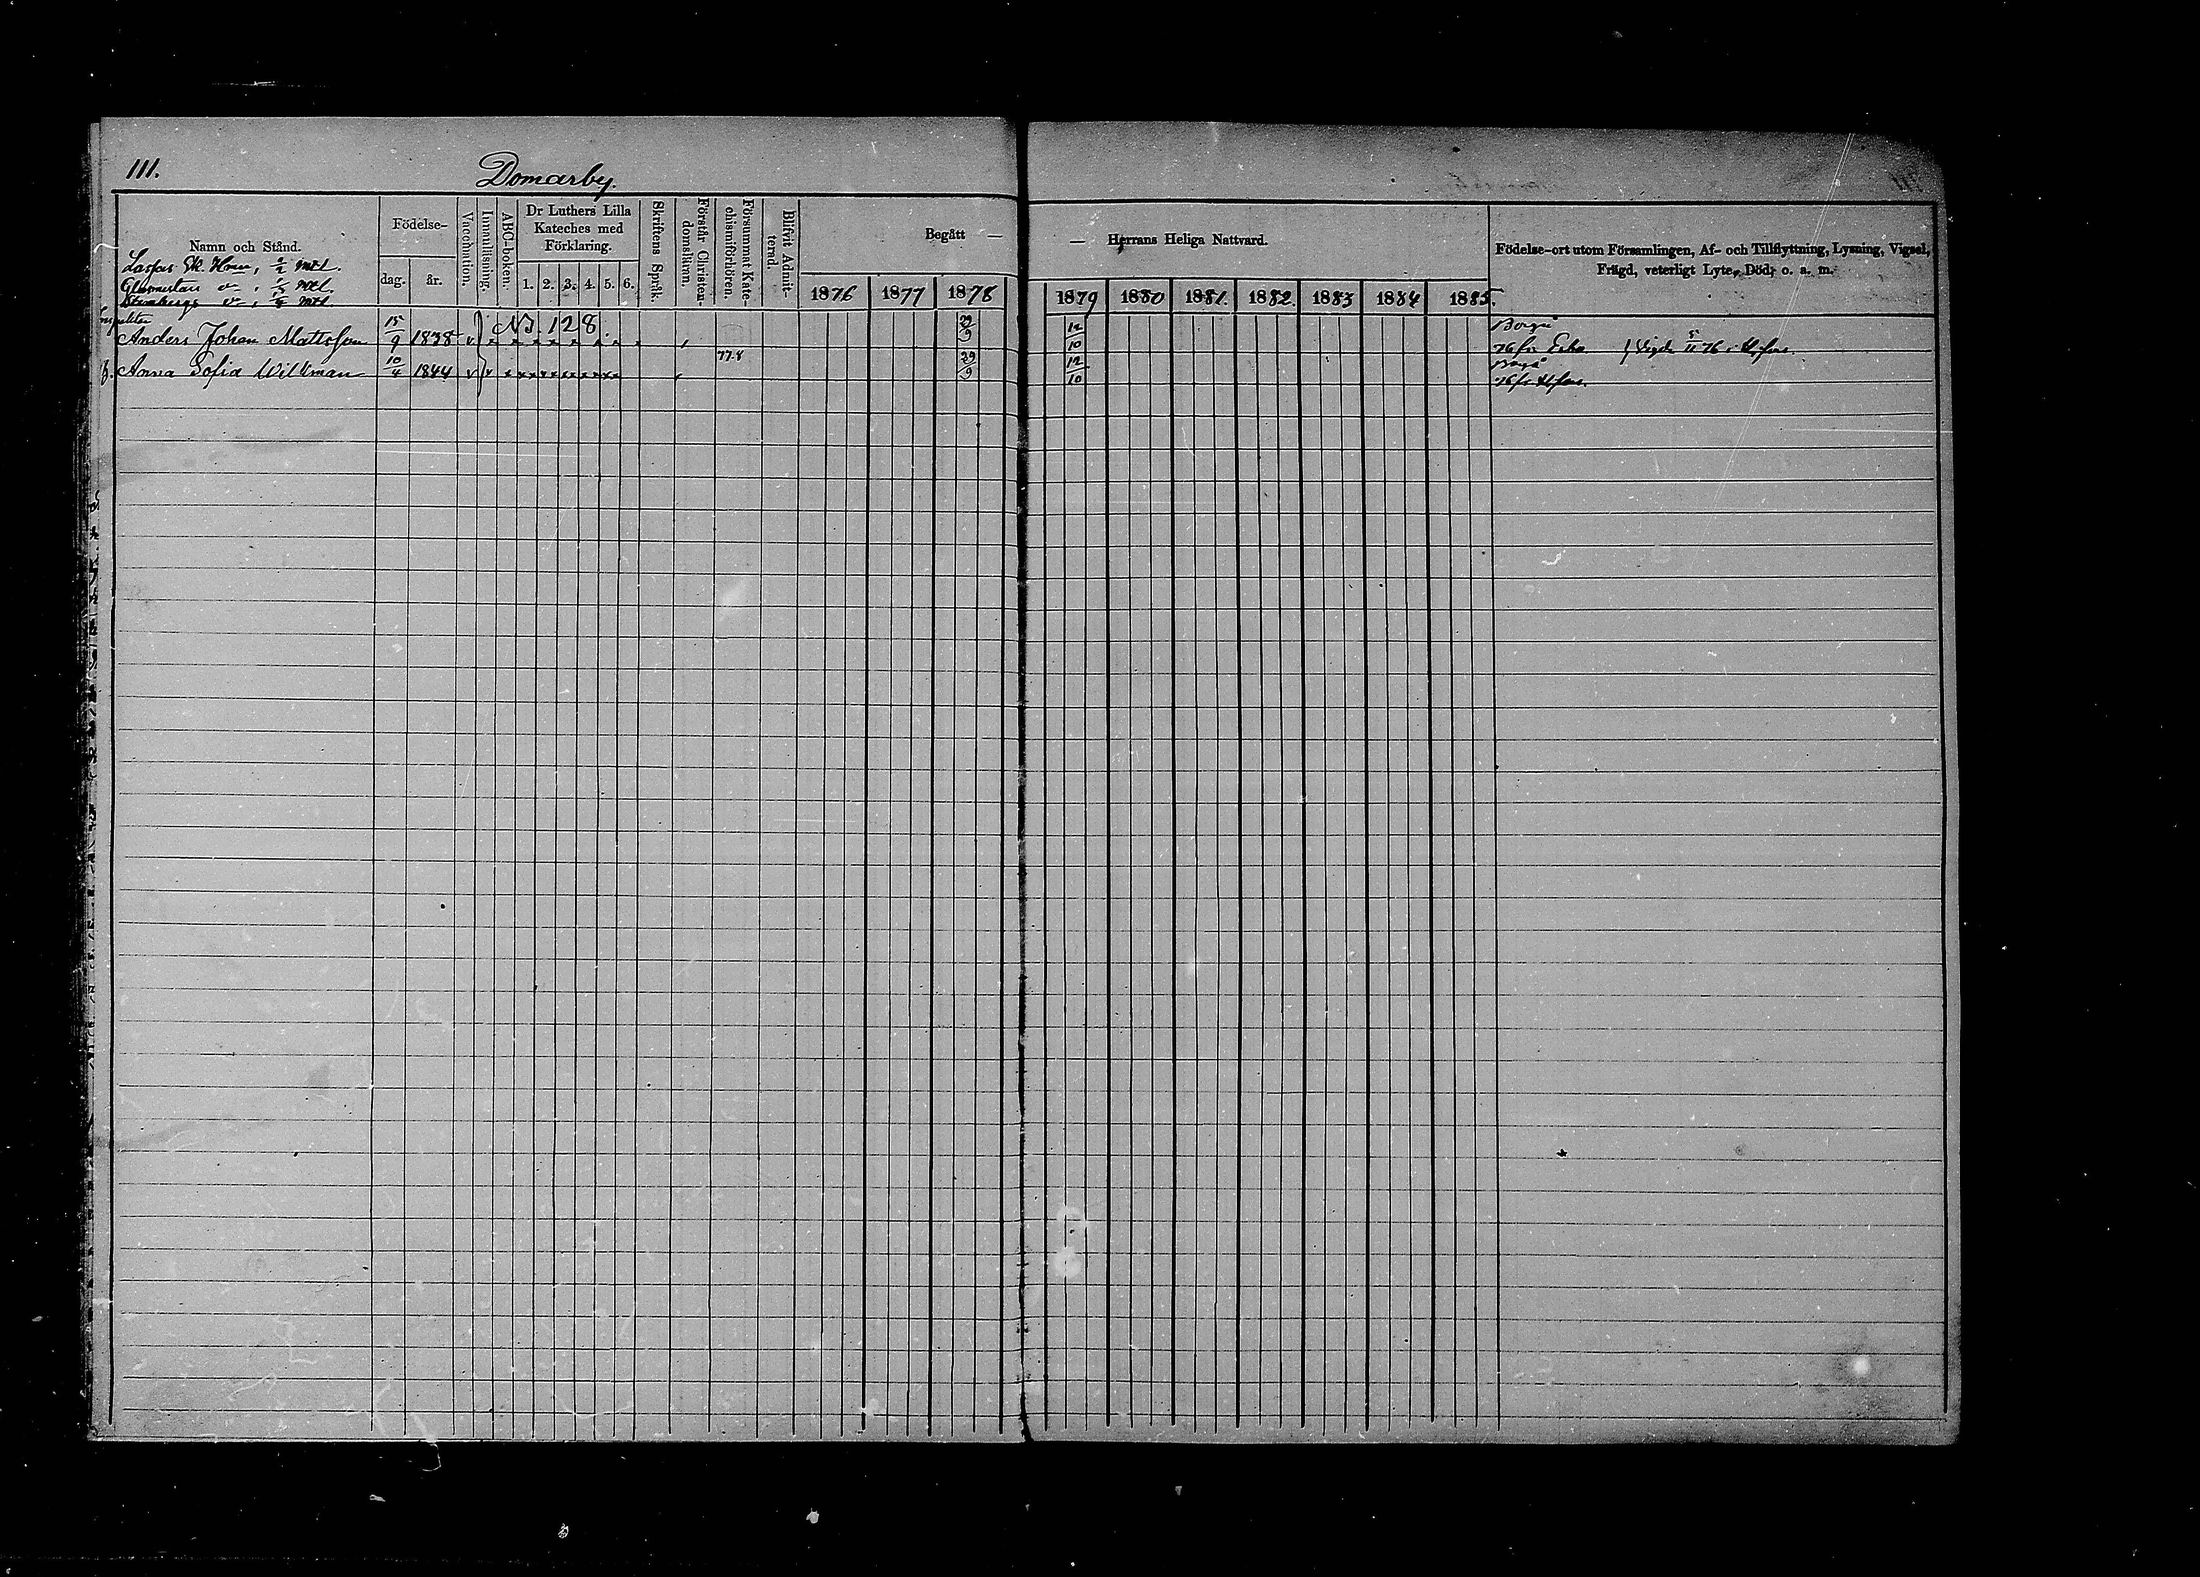 111.
Domarby.
Namn och Stånd.
Födelse-
dag.
år.
Vaccination.
Innanlläsning.
ABC-boken.
Dr Luthers Lilla
Kateches med
Förklaring.
1. 2. 3. 4. 5. 6.
Skriftens Språk.
Förstår Christen-
domsläran.
Försummat Kate-
chismiförhören.
Blifvit Admit-
terad.
Begått —
1876 1877 1878
— Herrans Heliga Nattvard.
1879 1880 1881. 1882. 1883 1884 1885.
Födelse-ort utom Församlingen, Af- och Tillflyttning, Lysning, Vigsel,
Frägd, veterligt Lyte, Död, o. a. m.
mtl.
mtl.
mtl.
NB. 128.
Anders Johan Mattsson 15/9 1838 v 29/9 12/10 Borgå
76 fr. Esbo Vigde 5/11 76 i
77.8
Anna Sofia Willman 10/4 1844 v 29/9 12/10 Borgå
76 fr